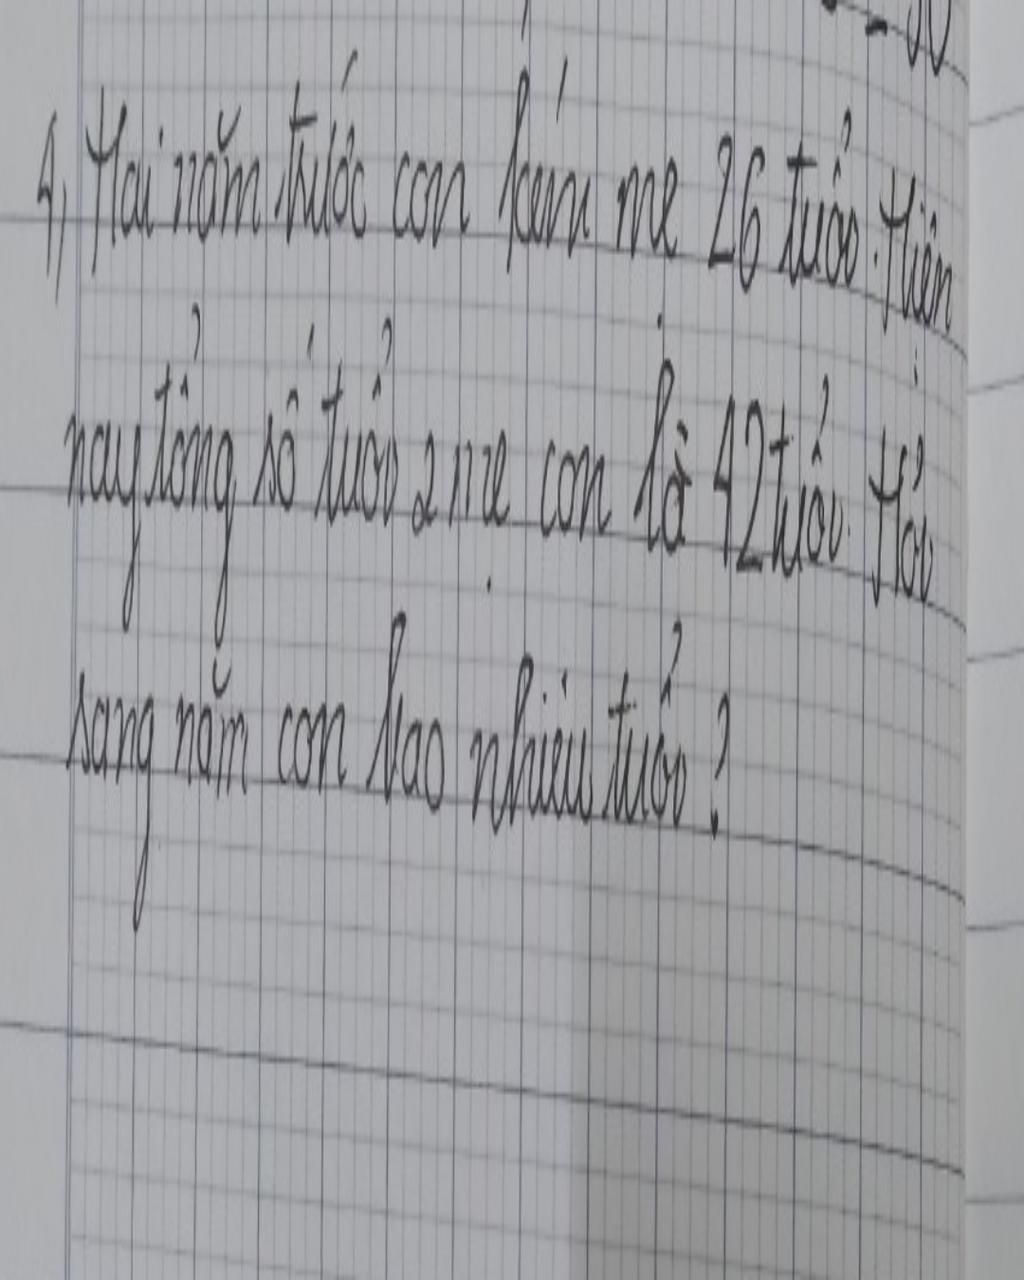 4, Hai năm trước con kém mẹ 26 tuổi. Hiện
nay tổng số tuổi 2 mẹ con là 42 tuổi. Hỏi
sang năm con bao nhiêu tuổi?